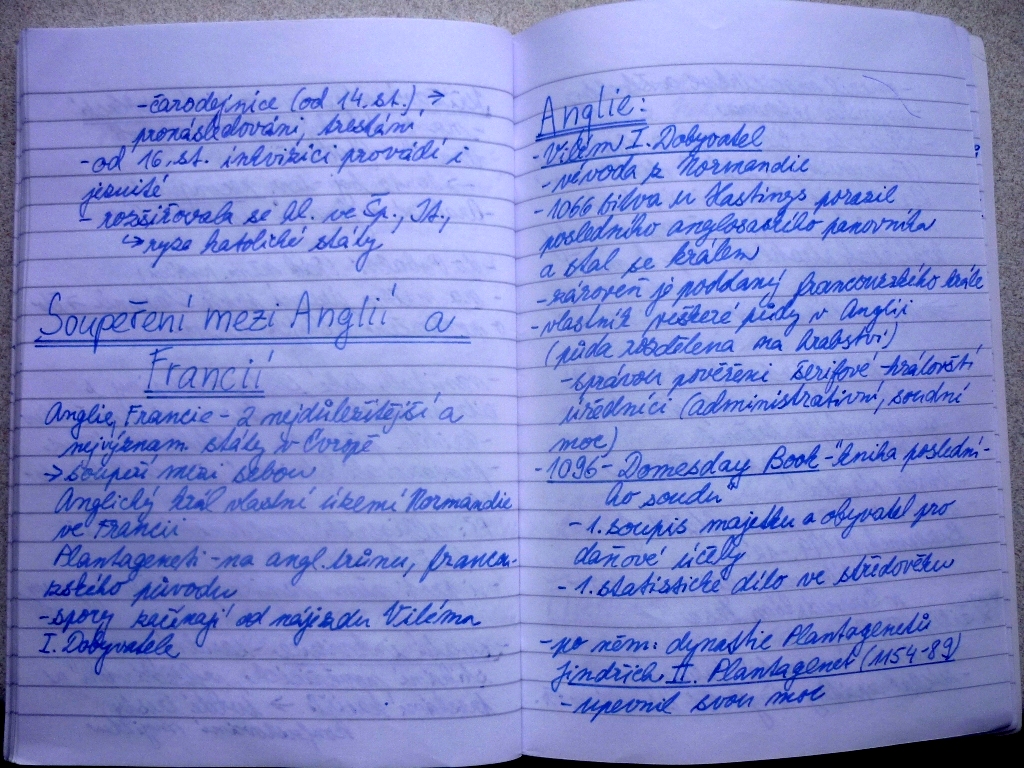 -čarodejnice (od 14. st.) →
pronásledování, trestání
-od 16. st. inkvizici provádí i
jezuité
- rozšiřovala se hl. ve Šp., It.,
↳ ryze katolické státy
Soupeření mezi Anglií a
Francií
Anglie, Francie - 2 nejdůležitější a
nejvýznam. státy v Evropě
→ soupeří mezi sebou
Anglický král vlastní území Normandie
ve Francii
Plantageneti - na angl. trůnu, franco-
uzského původu
-spory začínají od nájezdu Viléma
I. Dobyvatele
Anglie:
-Vilém I. Dobyvatel
-vévoda z Normandie
-1066 bitva u Hastings porazil
posledního anglosaského panovníka
a stal se králem
-zároveň je poddaný francouzského krále
-vlastník veškeré půdy v Anglii
(půda rozdělena na hrabství)
-správou pověřeni šerifové -královští
úředníci (administrativní, soudní
moc)
-1096 - Domesday Book -"kniha poslední-
ho soudu"
- 1. soupis majetku a obyvatel pro
daňové účely
- 1. statistické dílo ve středověku
-po něm: dynastie Plantagenetů
Jindřich II. Plantagenet (1154-89)
-upevnil svou moc